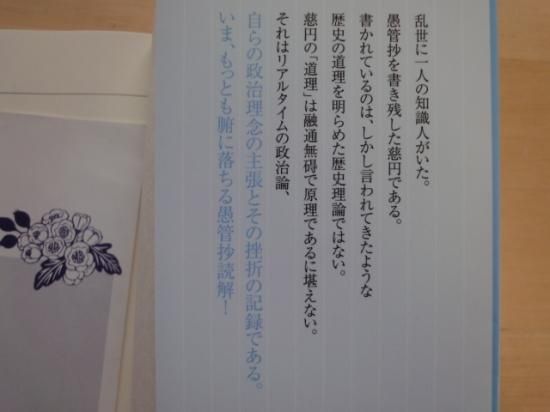 乱世に一人の知識人がいた。
愚管抄を書き残した慈円である。
書かれているのは、しかし言われてきたような
歴史の道理を明らめた歴史理論ではない。
慈円の「道理」は融通無碍で原理であるに堪えない。
それはリアルタイムの政治論、
自らの政治理念の主張とその挫折の記録である。
いま、もっとも腑に落ちる愚管抄読解！